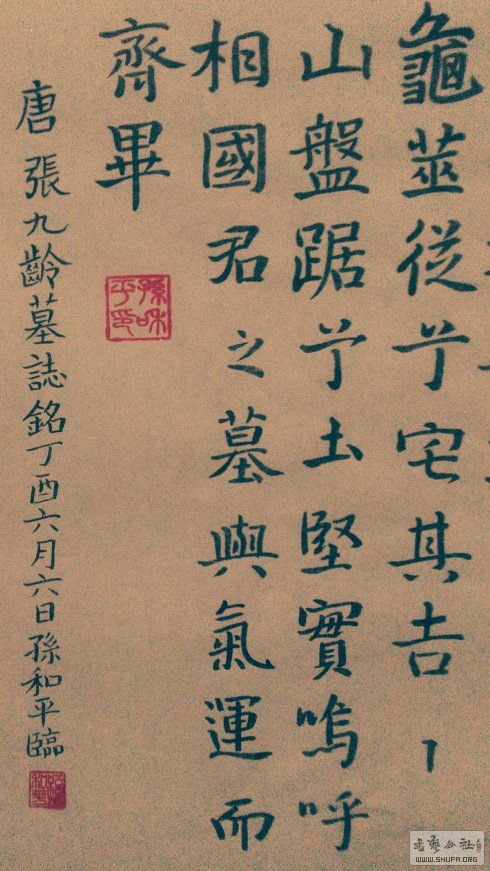 龜筮從兮宅其吉
山盤踞兮土堅實嗚呼
相國君之墓與氣運而
齊畢
孫和平印
唐張九齡墓誌銘丁酉六月六日孫和平臨
WWW.SHUFA.ORG